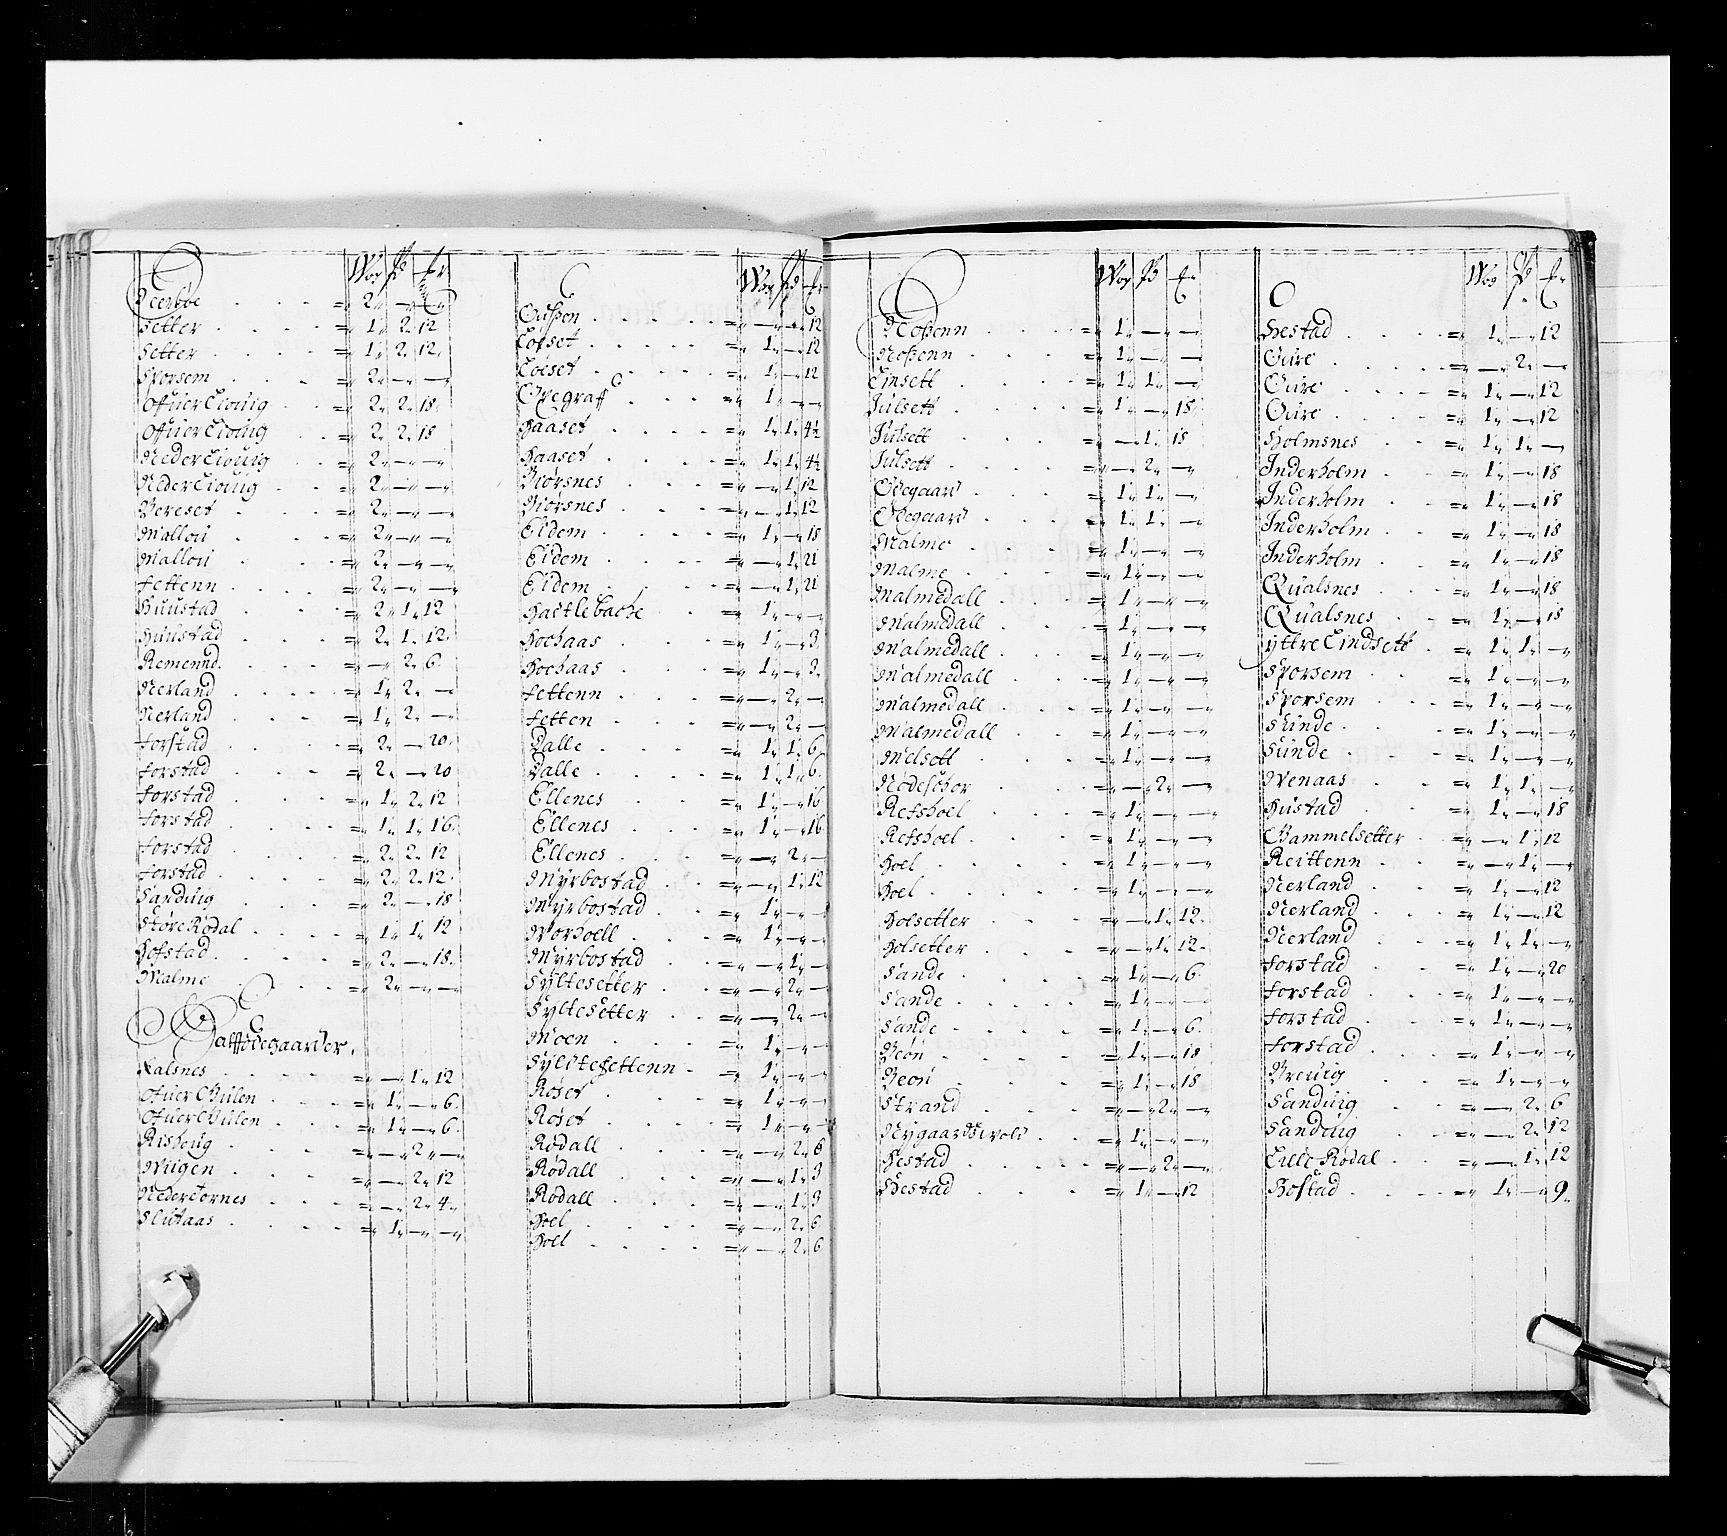 Wog Pd Er
Neerbøe = 2 — —
Setter = 1 2 12
Setter = 1 2 12
Sporsem = 2 — —
Ofuer Lioug = 2 2 18
Ofuer Lioug = 2 2 18
Neder Lioug = 2 — —
Neder Lioug = 2 — —
Vereset = 2 — —
Mallou = 2 — —
Mallou = 2 — —
Fettenn = 2 — —
Huustad = 2 1 12
Huustad = 2 1 12
Remennd = — 2 6
Nerland = 1 2 —
Nerland = 1 2 —
Forstad = 2 — 20
Forstad = 2 — 20
Forstad = 1 2 12
Forstad = 1 1 16
Forstad = 2 2 12
Forstad = 2 2 12
Sanduig = 2 — 18
Støre Rødal = 1 1 12
Hofstad = 2 — 18
Malme = 2 — —
Halffødegaarder.
Nalsnes = — 1 12
Ofuer Gulen = 1 — 6
Ofuer Gulen = 1 — 6
Rishoug = — 2 —
Wiigen = — 2 12
Neder Tornes = — 2 4
Slutaas = 1 — —
Wog Pd Er
= — — 12
Løeset = 1 — 12
Løeset = 1 — 12
Opegraff = 1 — —
Haaset = 1 1 4½
Haaset = 1 1 4½
Biørsnes = — 1 12
Biørsnes = — 1 12
Eidem = 1 — 18
Eidem = — 1 21
Eidem = — 1 21
Hastlebache = 1 — —
Hochaas = 1 — 3
Hochaas = 1 — 3
Fettenn = — 2 —
Fetten = — 2 —
Dalle = 1 1 6
Dalle = 1 1 6
Ellenes = 1 — 16
Ellenes = 1 — 16
Ellenes = — 2 —
Myrbostad = — 1 12
Myrbostad = 1 — —
Worhoell = 1 — —
Myrbostad = — 1 —
Syltesetter = — 2 —
Syltesetter = — 2 —
Moen = 1 — —
Syltesettenn = 1 — —
Røset = 1 — —
Røset = 1 — —
Rødall = — 2 6
Rødall = — 1 3
Rødall = — 1 3
Hoel = — 2 6
Hoel = — 2 6
Wog Pd Er
Moßenn = 1 — —
Moßenn = 1 — —
Linsett = 1 1 —
Julsett = 1 — 18
Julsett = — 1 18
Julsett = — 2 —
Opegaard = 1 1 —
Opegaard = 1 1 —
Malme = 1 — —
Malme = 1 — —
Malmedall = 1 — —
Malmedall = 1 — —
Malmedall = 1 — —
Malmedall = 1 — —
Malmedall = 1 — —
Malmedall = 1 — —
Melsett = 1 — —
Nødeschor = — 2 —
Refshoel = 1 — —
Refshoel = 1 — —
Hoel = 1 — —
Hoel = 1 — —
Holsetter = — 1 12
Holsetter = — 1 12
Sande = 1 — 6
Sande = 1 — —
Sande = 1 — 6
Beon = 1 — 18
Beon = 1 — 18
Strand = — 2 —
Nygaardsvold = 1 — —
Hestad = — 2 —
Hestad = 1 — 12
Wog Pd Er
Hestad = 1 — 12
Oure = — 2 —
Oure = 1 — 12
Oure = 1 — 12
Holmsnes = 1 1 —
Inderholm = 1 — 18
Inderholm = 1 — 18
Inderholm = 1 — 18
Inderholm = 1 — 18
Qualsnes = 1 — 18
Qualsnes = 1 — 18
yttre Lindsett = 1 1 —
Sporsem = 1 — —
Sporsem = 1 — —
Sunde = 1 — —
Sunde = 1 — —
Wenaas = 1 1 —
Hustad = 1 — 18
Gammelsetter = — 1 12
Reittenn = — 1 —
Nerland = 1 — 12
Nerland = 1 — 12
Nerland = 1 1 —
Forstad = 1 — 20
Forstad = 1 — —
Forstad = 1 — —
Forstad = 1 — —
Breuig = 1 — —
Sanduig = — 2 6
Sanduig = — 2 12
Lille Rødal = — 1 12
Hostad = 1 — 9